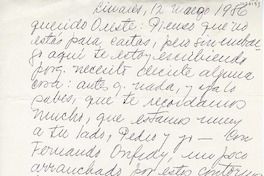 Linares, 12 marzo 1986
querido Oreste: Pienso que no
estás para cartas, pero sin embar-
go aquí te estoy escribiendo
porq. necesito decirte alguna
cosa: antes q. nada, y ya lo
sabes, que te recordamos
mucho, que estamos muy
a tu lado, Pedro y yo — Con
Fernando, un poco
arranchado por estos contornos